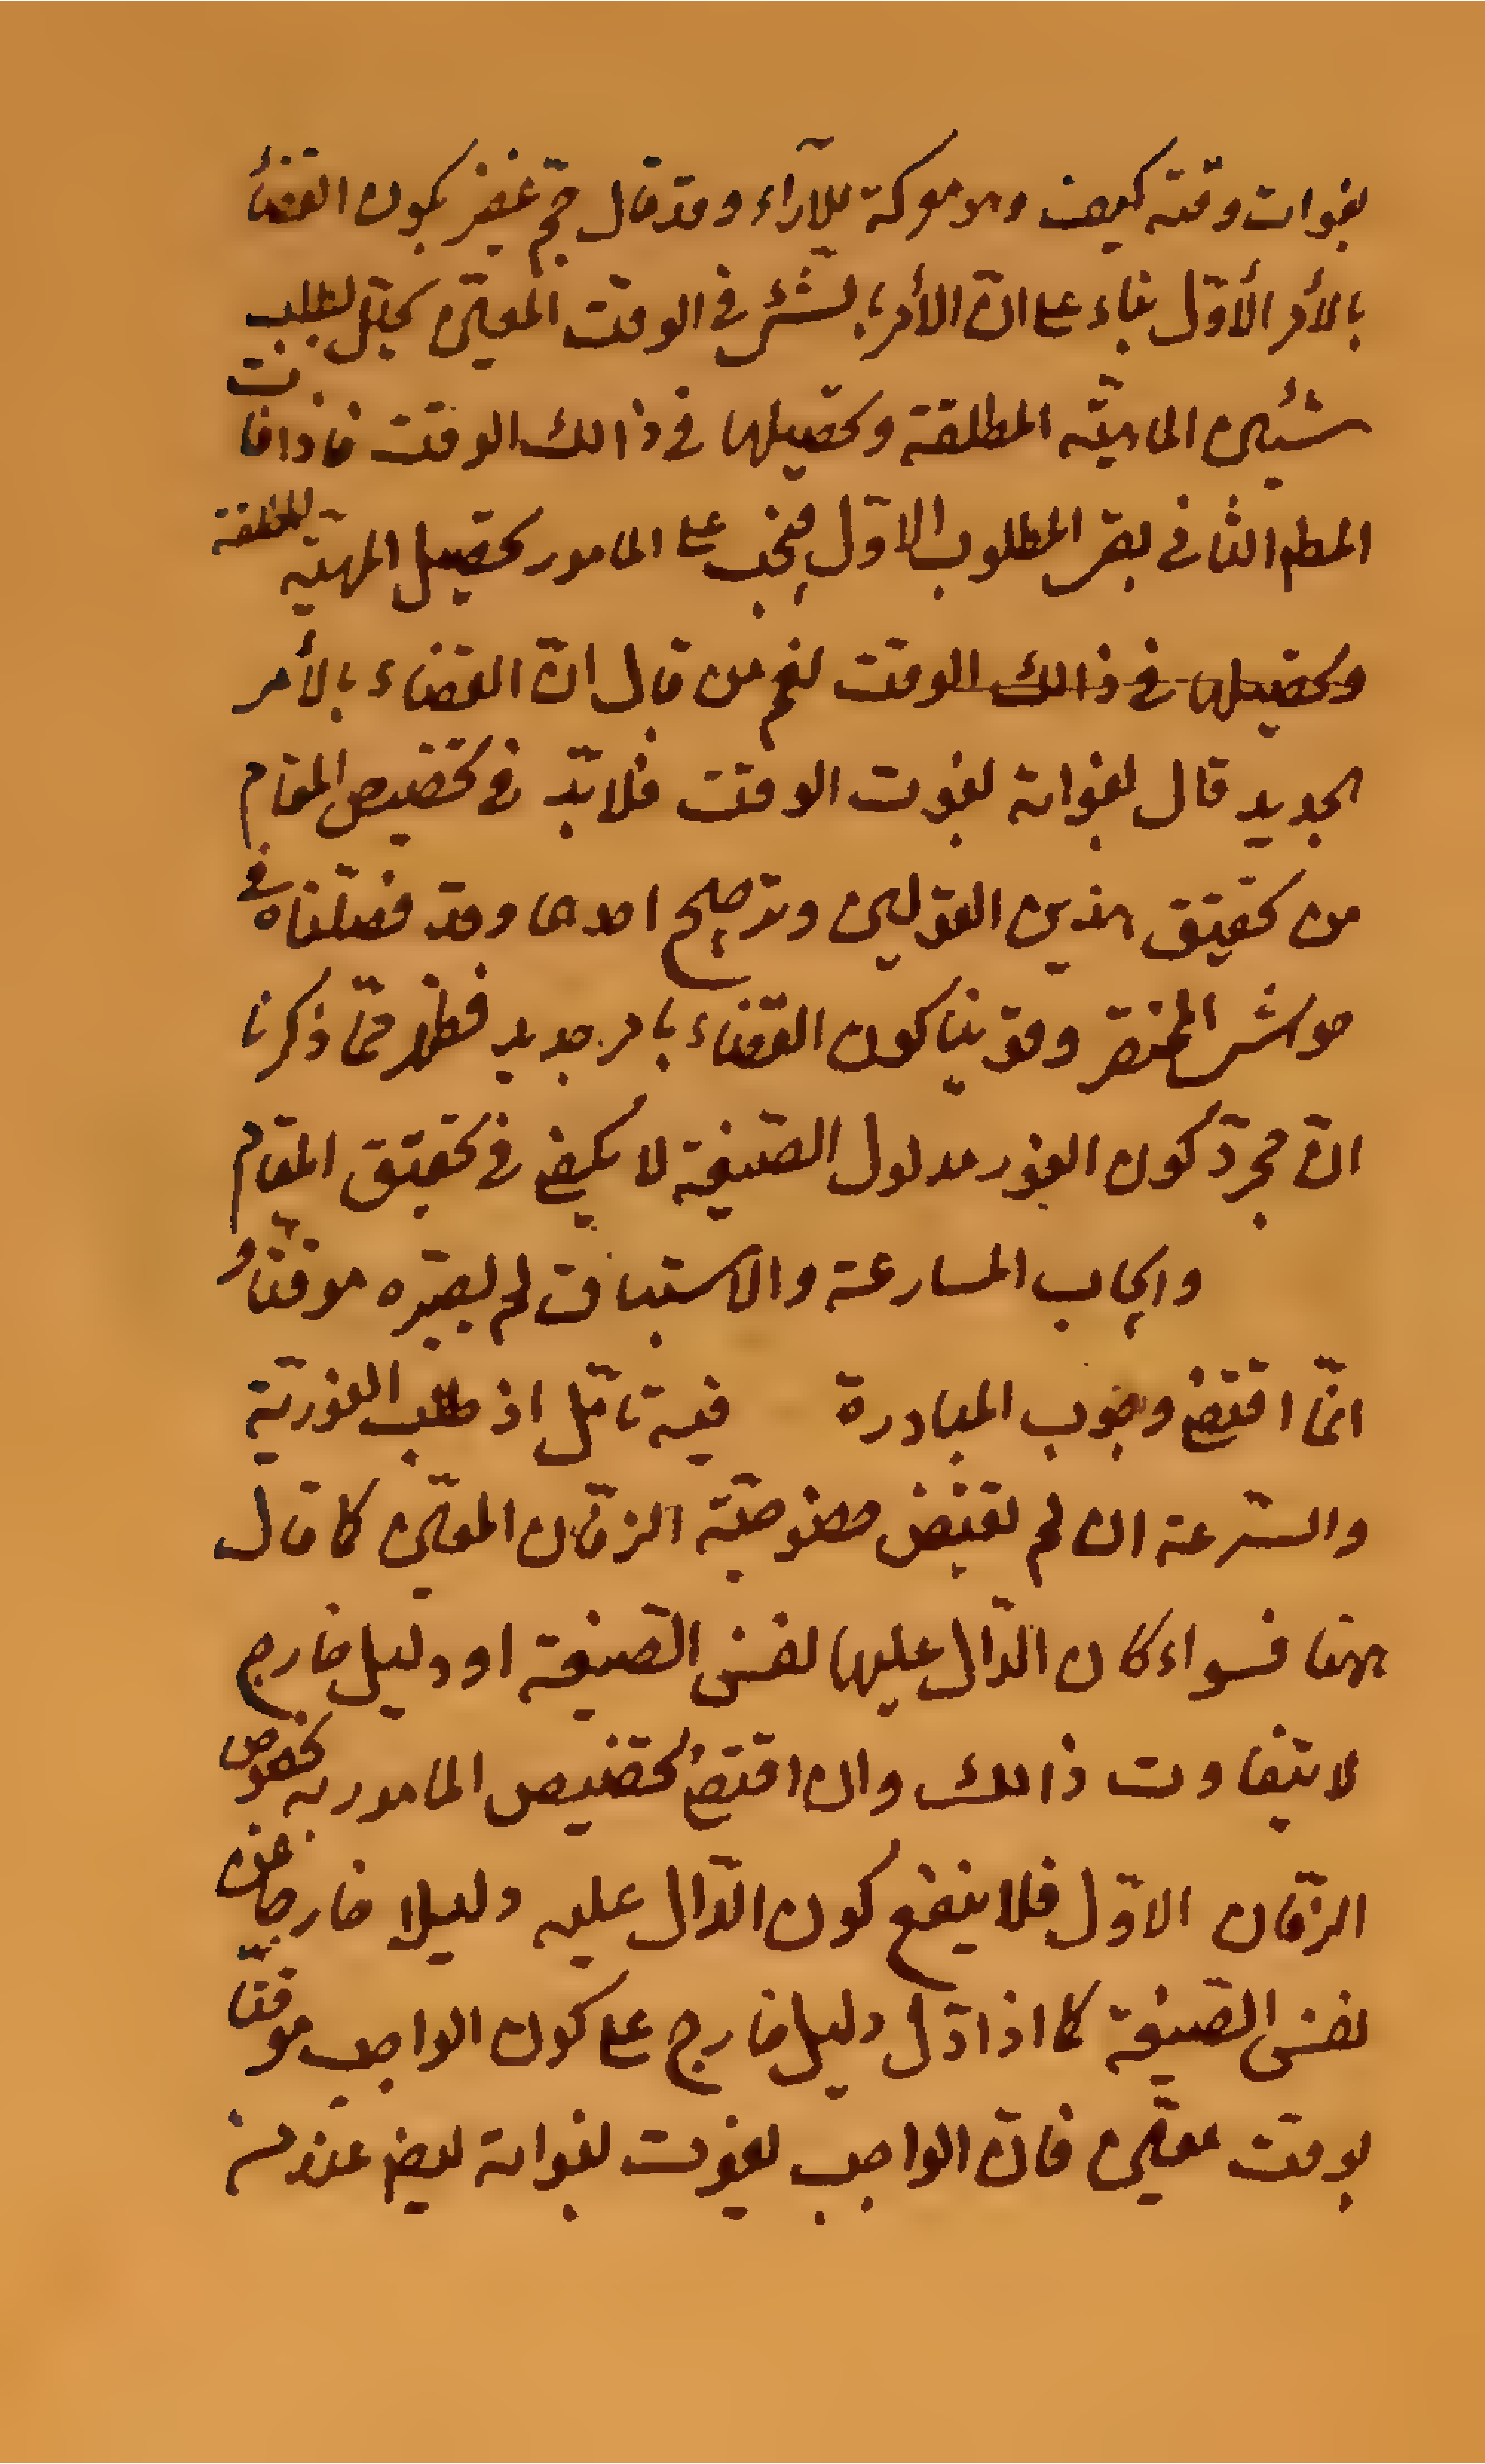 بفوات وقته كيف وهو معركة للآراء وقد قال جمّ غفير بكون القضاء
بالأمر الأوّل بناء على انّ الأمر بالشئ في الوقت المعيّن يحتمل لطلب
شيئين الماهيّة المطلقة وتحصيلها في ذالك الوقت فاذا فات
المطم الثاني بقى المطلوب الاوّل فيجب على المامور تحصيل المهيّة المطلقة
وتحصيلها في ذالك الوقت نعم من قال انّ القضاء بالأمر
الجديد قال بفواته بفوت الوقت فلا بدّ في تخصيص المقام
من تحقيق هذين القولين وترجيح احدهما وقد فصّلناه في
حواشى المختصر وقوينا كون القضاء بامر جديد فظهر ممّا ذكرنا
انّ مجرّد كون الفور مدلول الصّيغة لا يكفي في تحقيق المقام
وايجاب المسارعة والاستباق لم يصيّره موقّتا و
انّما اقتضى وجوب المبادرة فيه تامّل اذ طلب الفوريّة
والسّرعة ان لم تقتض خصوصيّة الزّمان المعيّن كما قال
هنا فسواء كان الدّال عليها نفس الصّيغة او دليل خارج
لا يتفاوت ذالك وان اقتضى تخصيص المامور به بخصوص
الزّمان الاوّل فلا ينفع كون الدّال عليه دليلا خارجا عن
نفس الصّيغة كما اذا دّل دليل خارج على كون الواجب موقّتا
بوقت معيّن فانّ الواجب يفوت بفواته ايضا عند من